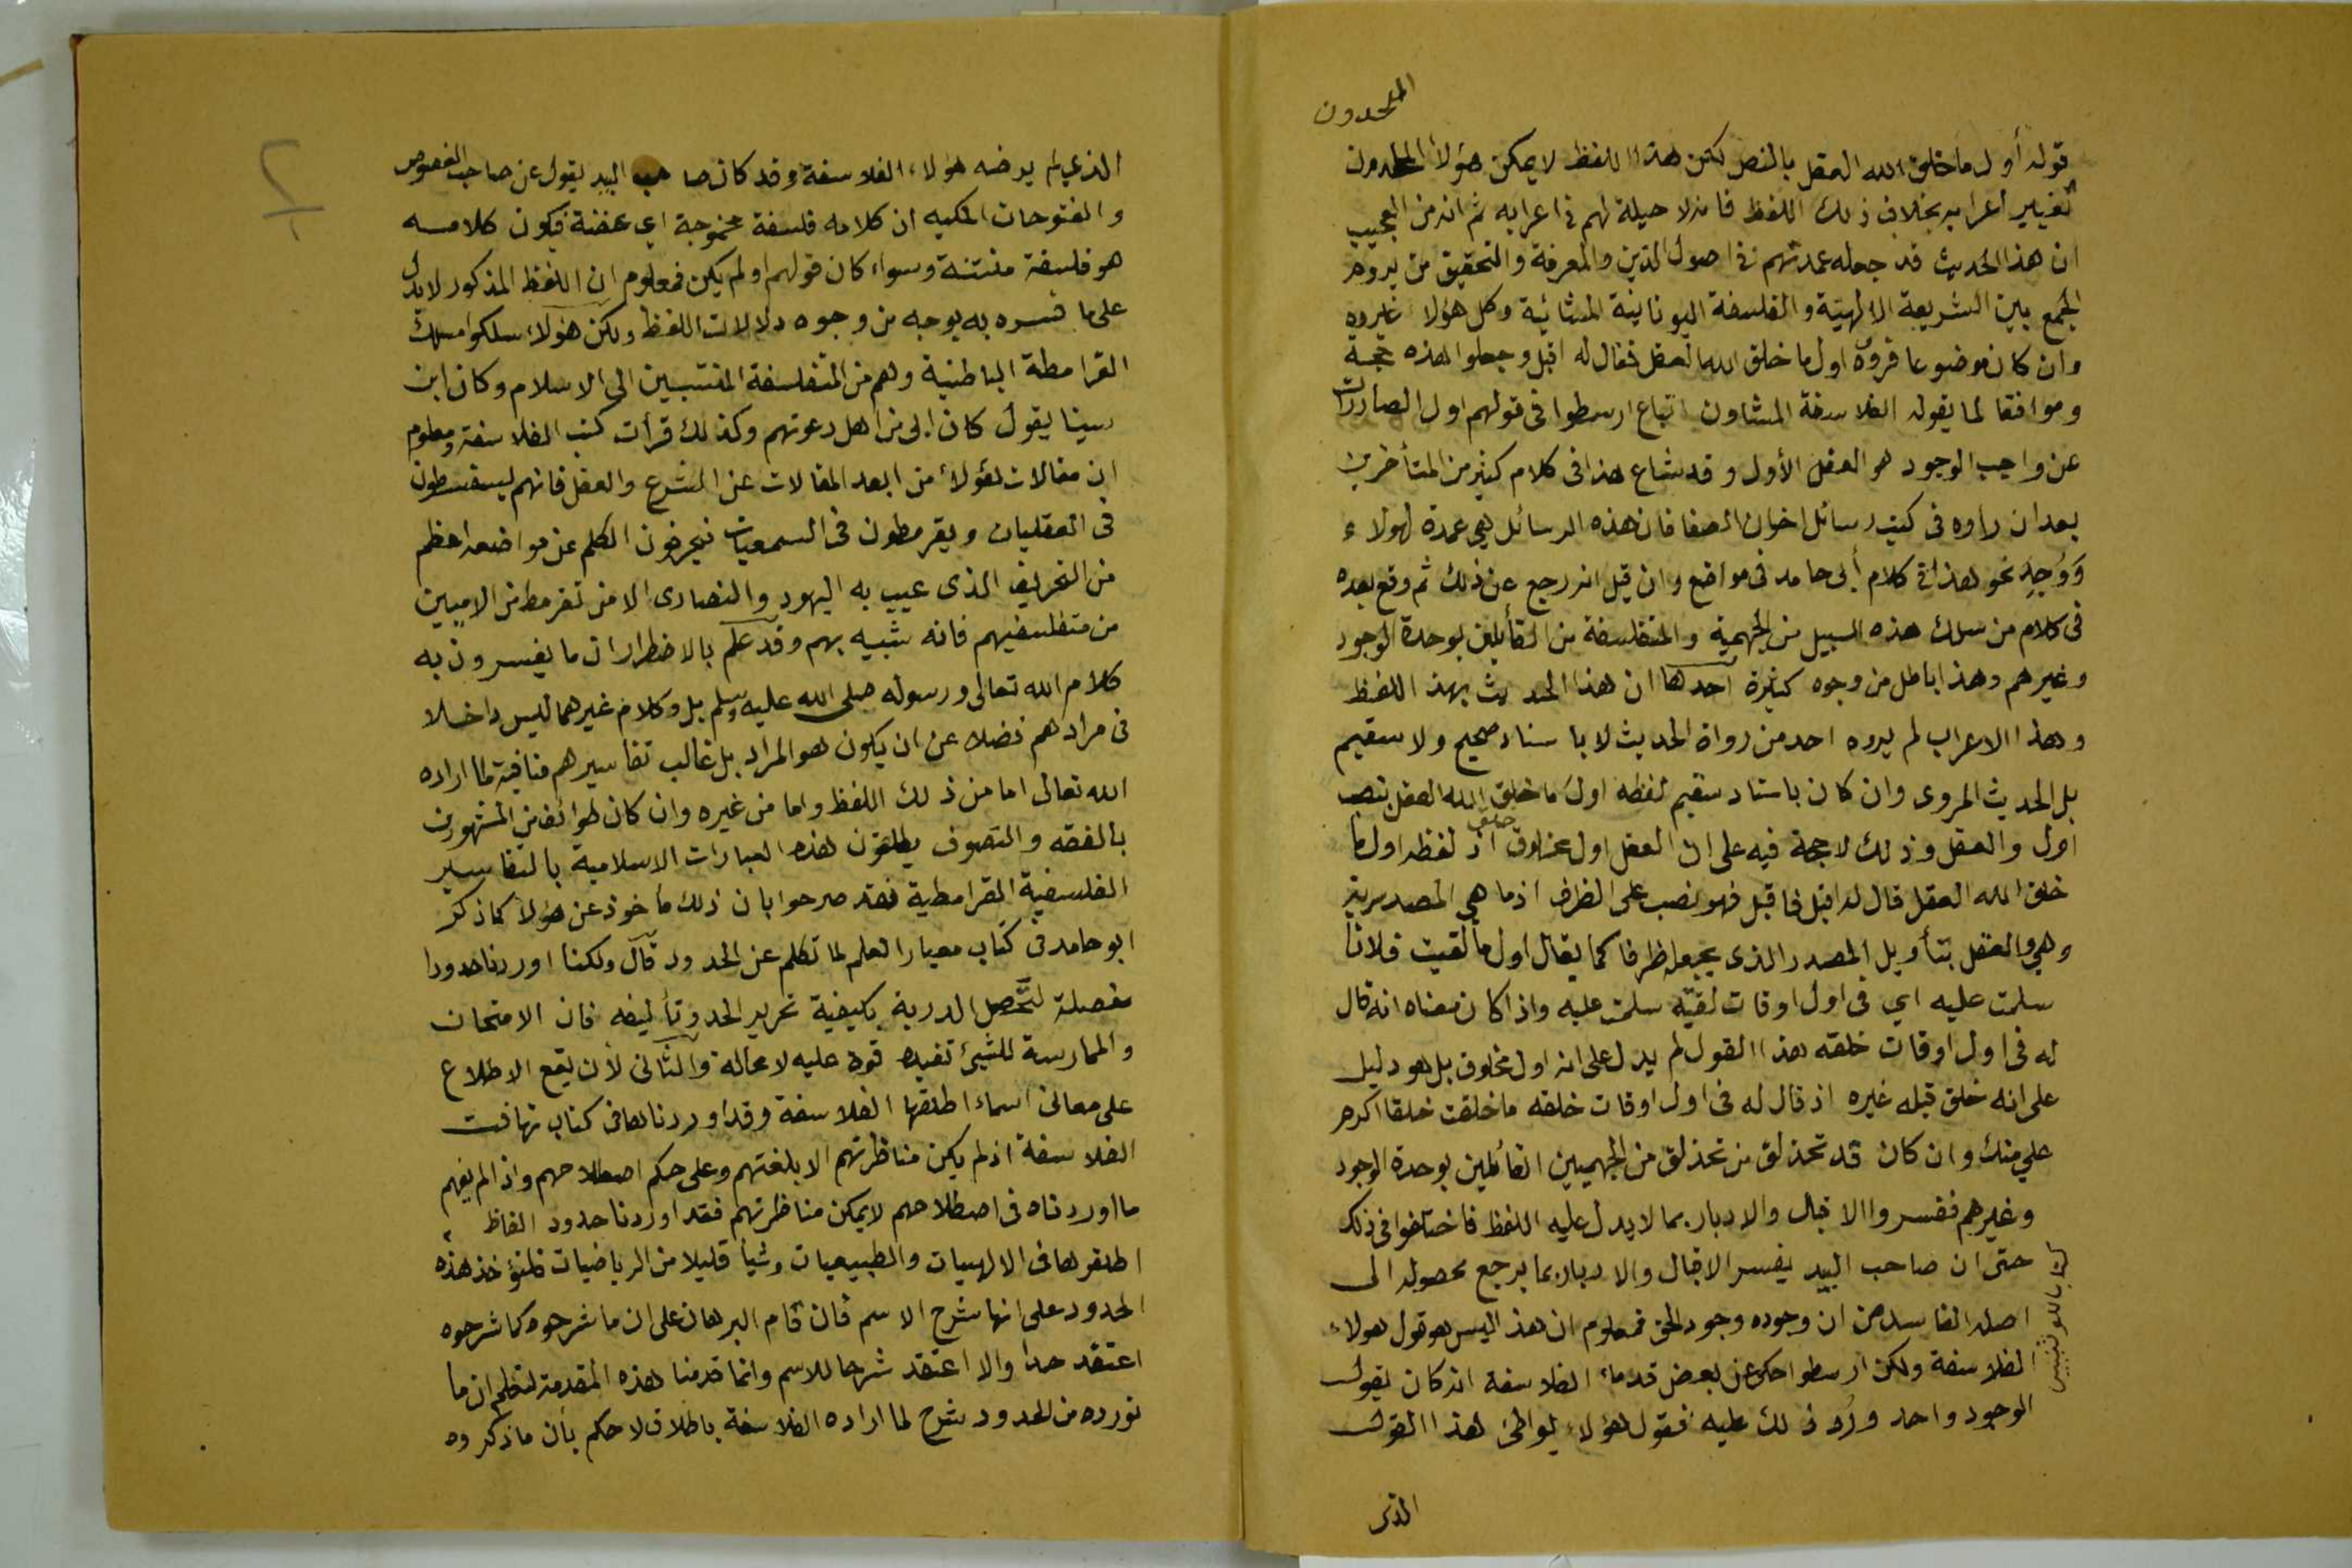 الملحدون
قوله أول ما خلق الله العقل بالنصر لكن هذا اللفظ لا يمكن هؤلا الملحدون
تغيير اعرابه بخلاف ذلك اللفظ فانه لا حيلة لهم في اعرابه ثم انه من العجيب
ان هذا الحديث قد جعله عمدتهم في اصول الدين والمعرفة والتحقيق من يروم
الجمع بين الشريعة الالهية والفلسفة اليونانية المشائية وكل هؤلا غيروه
وان كان موضوعا فروه اول ما خلق الله العقل فقال له اقبل وجعلوا هذه حجة
وموافقا لما يقوله الفلاسفة المشاون اتباع ارسطوا في قولهم اول الصادرات
عن واجب الوجود هو العقل الأول وقد شاع هذا في كلام كثير من المتأخرين
بعد ان رأوه في كتب رسائل اخوان الصفا فان هذه الرسائل هي عمدة لهولاء
وَوُجِد نحو هذا في كلام أبى حامد في مواضع وان قيل انه رجع عن ذلك ثم وقع بعده
في كلام من سلك هذه السبيل من الجهمية والمتفلسفة من القائلين بوحدة الوجود
وغيرهم وهذا باطل من وجوه كثيرة احدها ان هذا الحديث بهذ اللفظ
وهذا الاعراب لم يروه احد من رواة الحديث لا باسناد صحيح ولا سقيم
بل الحديث المروى وان كان باسناد سقيم لفظه اولَ ما خلق الله العقل بنصب
اول والعقل وذلك لا حجة فيه على ان العقل اول مخلوق اذ لفظه اول ما
خلق الله العقل قال له اقبل فاقبل فهو نصب على الظرف اذ ما هي المصدرية
وهي والفعل بتأويل المصدر الذى يجعل ظرفا كما يقال اول ما لقيت فلانا
سلمت عليه اي في اول اوقات لقيه سلمت عليه واذا كان معناه انه قال
له في اول اوقات خلقه هذا القول لم يدل على انه اول مخلوق بل هو دليل
على انه خلق قبله غيره اذ قال له في اول اوقات خلقه ما خلقت خلقا اكرم
علي منك وان كان قد تحذلق من تحذلق من الجهميين القائلين بوحدة الوجود
وغيرهم ففسروا الاقبال والادبار بما لا يدل عليه اللفظ فاختلفوا في ذلك
حتى ان صاحب البد يفسر الاقبال والادبار بما يرجع محصوله الى
اصله الفاسد من ان وجوده وجود الحق فمعلوم ان هذا ليس هو قول هولاء
الفلاسفة ولكن ارسطوا حكى عن بعض قدماء الفلاسفة انه كان يقول
الوجود واحد ورُد ذلك عليه فقول هؤلاء يواطئ هذا القول
الذى
الذي لم يرضه هؤلاء الفلاسفة وقد كان صاحب البد يقول عن صاحب الفصوص
والفتوحات المكيه ان كلامه فلسفة مخموجة اي عفنة فيكون كلامه
هو فلسفة منتنة وسواء كان قولهم اولم يكن فمعلوم ان اللفظ المذكور لا يدل
على ما فسره به بوجه من وجوه دلالات اللفظ ولكن هؤلاء سلكوا مسلك
القرامطة الباطنية وهم من المتفلسفة المنتسبين الى الاسلام وكان ابن
سينا يقول كان ابى من اهل دعوتهم وكذلك قرأت كتب الفلاسفة ومعلوم
ان مقالات هؤلاء من ابعد المقالات عن الشرع والعقل فانهم يسفسطون
في العقليات ويقرمطون في السمعيات فيحرفون الكلم عن مواضعه اعظم
من التحريف الذى عيب به اليهود والنصارى الا من تقرمط من الاميين
من متفلسفيهم فانه شبيه بهم وقد علم بالاضطرار ان ما يفسرون به
كلام الله تعالى ورسوله صلى الله عليه وسلم بل وكلام غيرهما ليس داخلا
في مرادهم فضلا عن ان يكون هو المراد بل غالب تفاسيرهم منافية لما اراده
الله تعالى اما من ذلك اللفظ واما من غيره وان كان طوائف من المشهورين
بالفقه والتصوف يطلقون هذه العبارات الاسلامية بالتفاسير
الفلسفية القرامطية فقد صرحوا بان ذلك مأخوذ عن هؤلا كما ذكر
ابو حامد في كتاب معيار العلم لما تكلم عن الحدود قال ولكنا اوردنا حدودا
مفصلة لتحصل الدربة بكيفية تحرير الحد وتأليفه فان الامتحان
والممارسة للشيئ تفيد قوة عليه لا محالة والثانى لأن يقع الاطلاع
على معانى اسماء اطلقها الفلاسفة وقد اوردناها في كتاب تهافت
الفلاسفة اذ لم يكن مناظرتهم الا بلغتهم وعلى حكم اصطلاحهم واذا لم يفهم
ما اوردناه في اصطلاحهم لا يمكن مناظرتهم فقد اوردنا حدود الفاظ
اطلقوها في الالهيات والطبيعيات وشيأ قليلا من الرياضيات فلتؤخذ هذه
الحدود على انها شرح الاسم فان قام البرهان على ان ما شرحوه كما شرحوه
اعتقد حدا والا اعتقد شرحا للاسم وانما قدمنا هذه المقدمة لتعلم ان ما
نورده من الحدود شرح لما اراده الفلاسفة باطلاق لا حكم بأن ما ذكروه